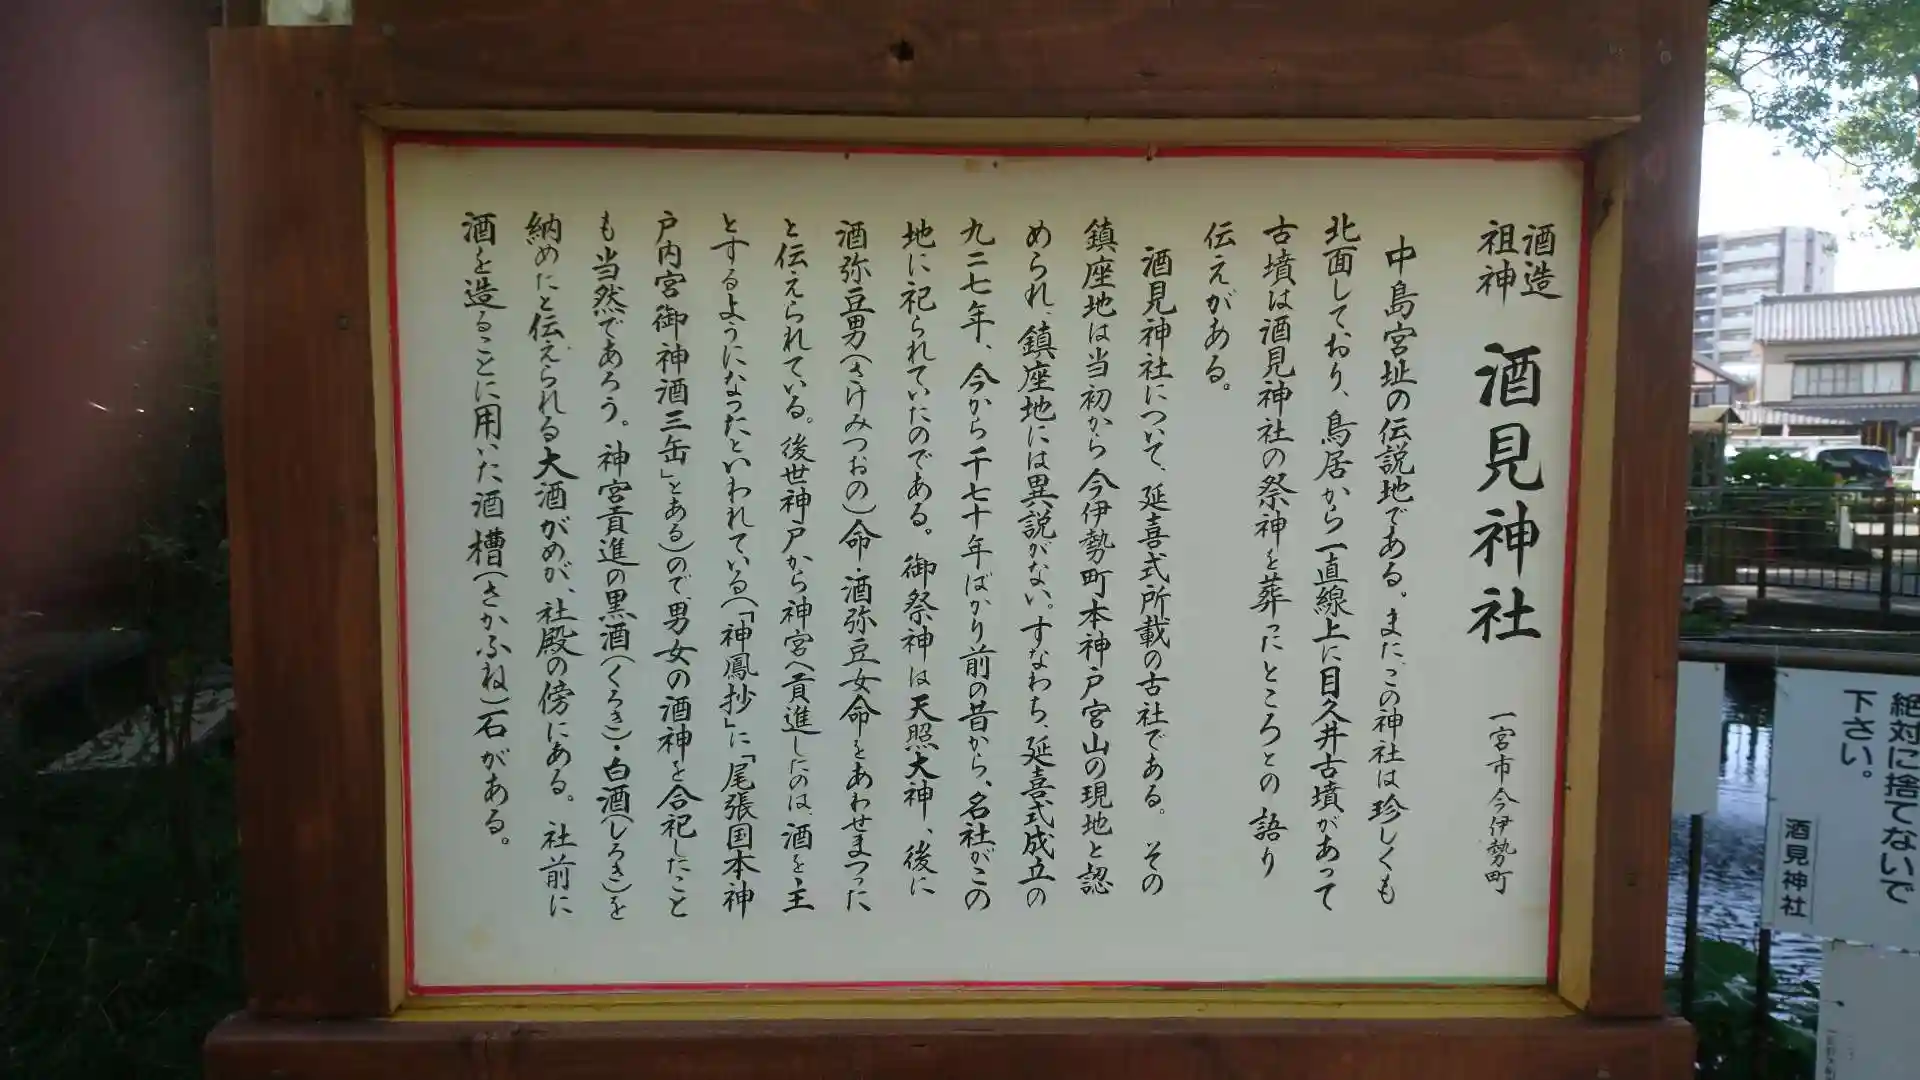 酒造
祖神
酒見神社
一宮市今伊勢町
中島宮址の伝説地である。また、この神社は珍しくも
北面しており、鳥居から一直線上に目久井古墳があって
古墳は酒見神社の祭神を葬ったところとの語り
伝えがある。
酒見神社について、延喜式所載の古社である。その
鎮座地は当初から今伊勢町本神戸宮山の現地と認
められ、鎮座地には異説がない。すなわち、延喜式成立の
九二七年、今から千七十年ばかり前の昔から、名社がこの
地に祀られていたのである。御祭神は天照大神、後に
酒弥豆男(さけみつおの)命・酒弥豆女命をあわせまつった
と伝えられている。後世神戸から神宮へ貢進したのは、酒を主
とするようになったといわれている(「神鳳抄」に「尾張国本神
戸内宮御神酒三缶」とある)ので、男女の酒神を合祀したこと
も当然であろう。神宮貢進の黒酒(くろき)・白酒(しろき)を
納めたと伝えられる大酒がめが、社殿の傍にある。社前に
酒を造ることに用いた酒槽(さかふね)石がある。
絶対に捨てないで
下さい。
酒見神社